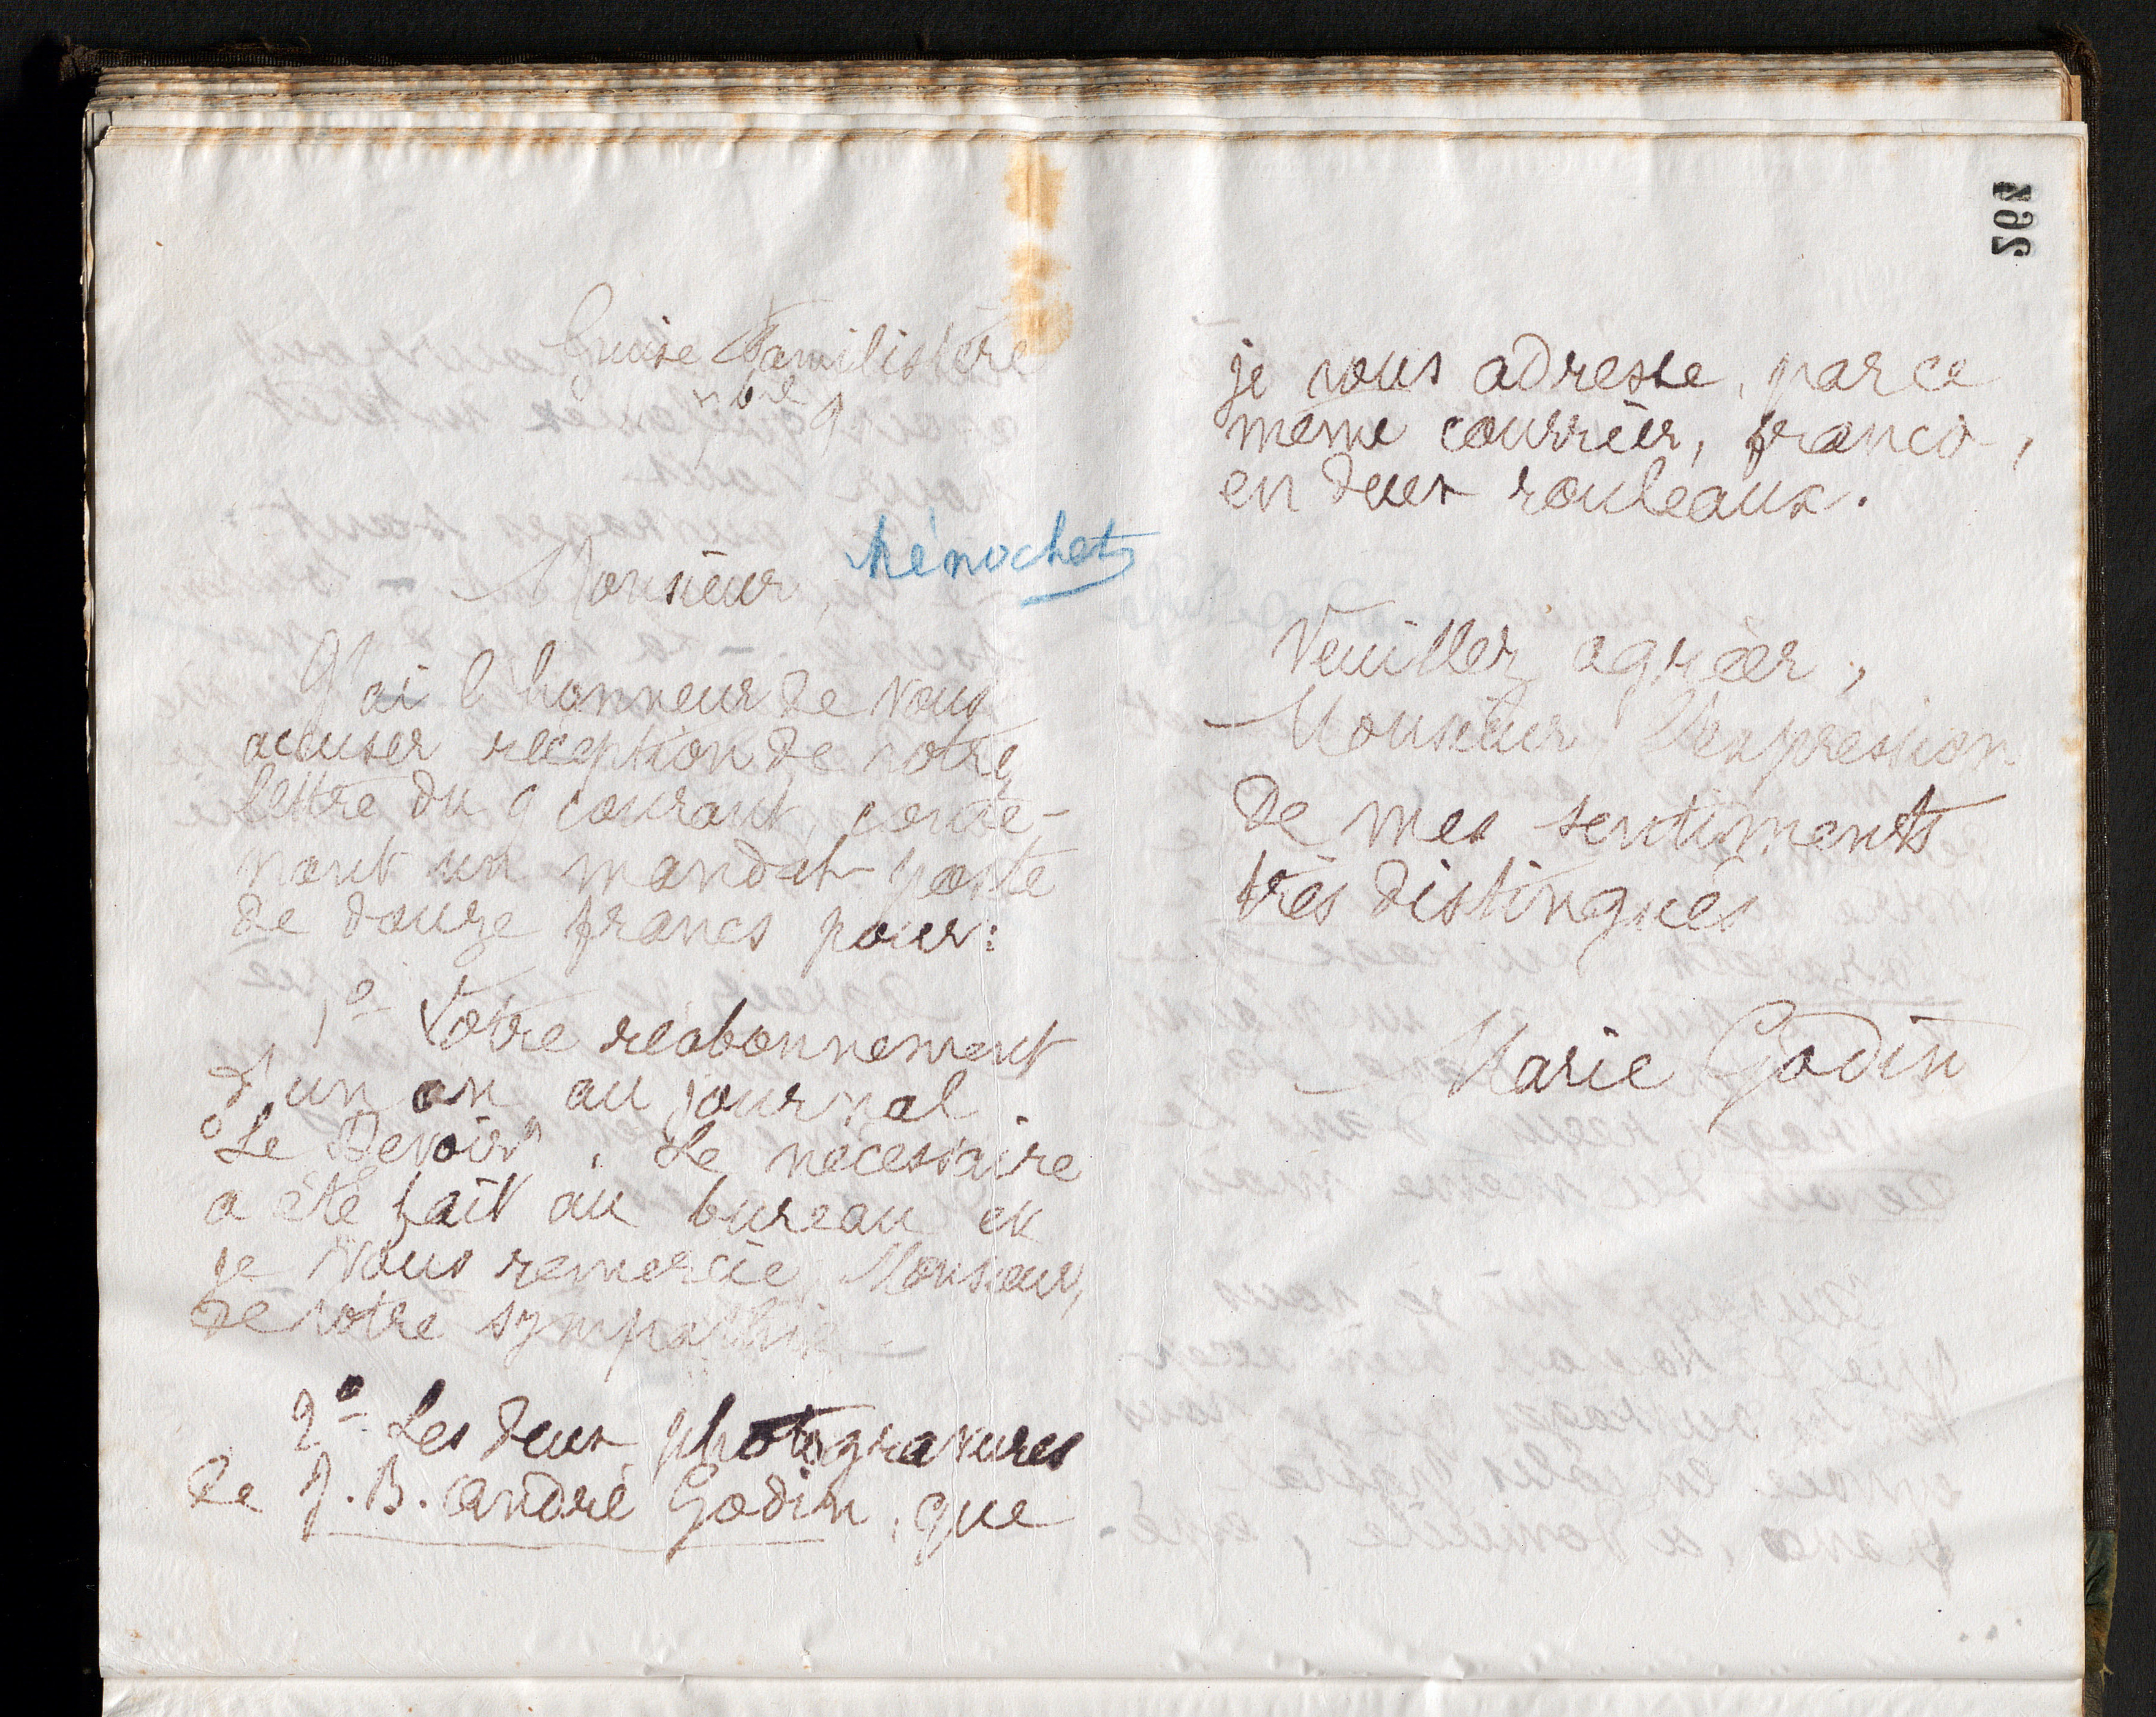 Guise Familistère
Monsieur, Ménochet
J'ai l'honneur de vous
accuser réception de votre
lettre du 9 courant, conte-
nant un mandat-poste
de douze francs pour:
1º Votre réabonnement
d'un an au journal
"Le Devoir". Le nécessaire
a été fait au bureau et
je vous remercie, Monsieur,
de votre sympathie
2º Les deux photogravures
de J. B. André Godin, que
268
je vous adresse, par ce
même courrier, franco,
en deux rouleaux.
Veuillez agréer,
Monsieur, l'expression
de mes sentiments
très distingués
Marie Godin